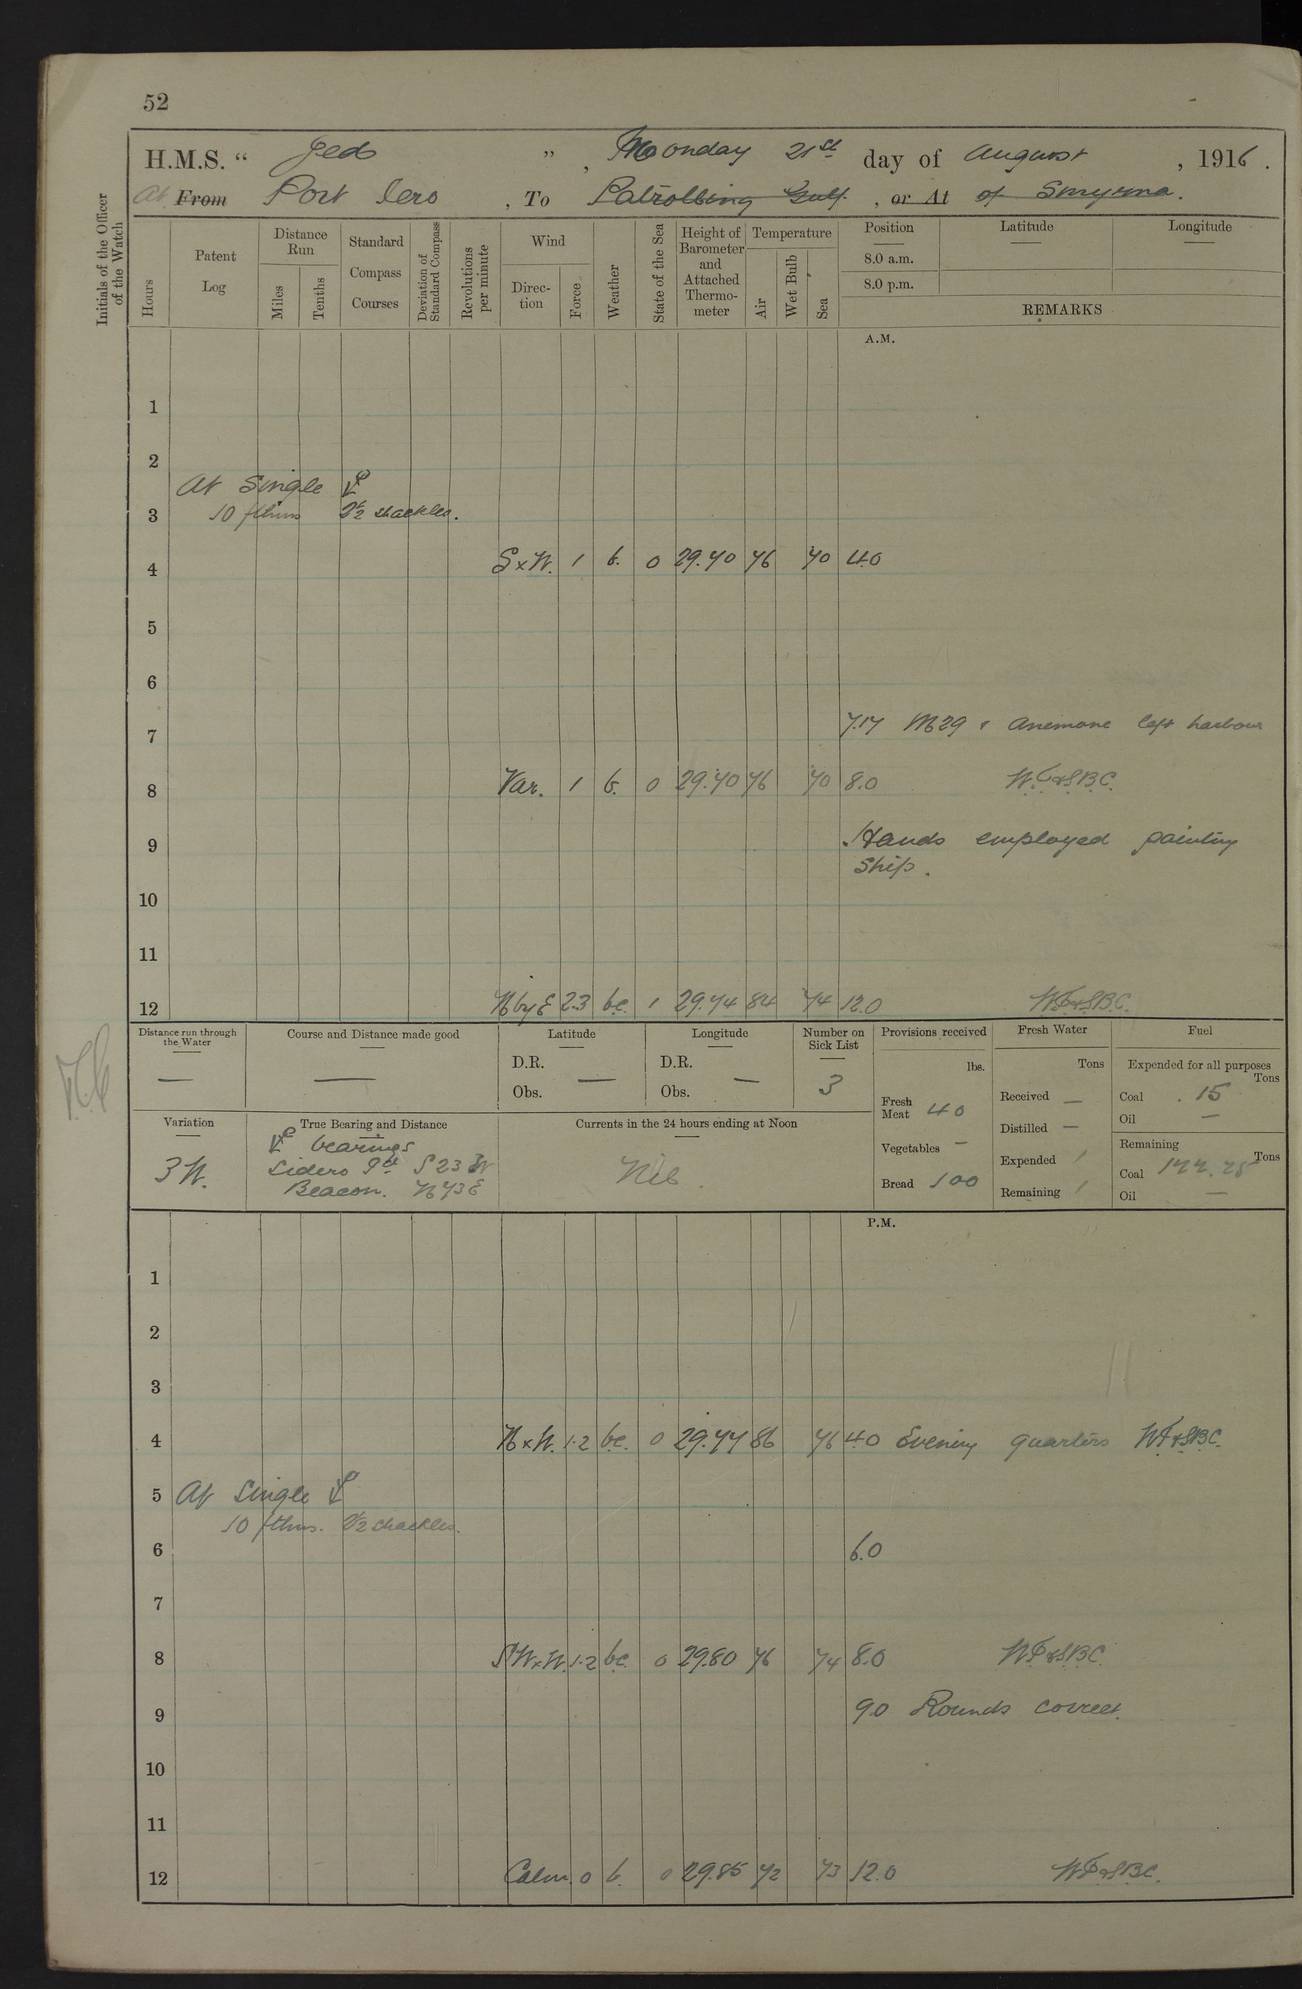 52
H.M.S. " Jed " , Monday 21st day of August , 1916 .
At From Port Iero , To Patrolling Gulf , or At of Smyrna .
Initials of the Officer of the Watch
Hours
Patent Log
Distance Run
Miles
Tenths
Standard Compass Courses
Deviation of Standard Compass
Revolutions per minute
Wind
Direction
Force
Weather
State of the Sea
Height of Barometer and Attached Thermometer
Temperature
Air
Wet Bulb
Sea
Position
Latitude
Longitude
8.0 a.m.
8.0 p.m.
REMARKS
A.M.
1
2
At Single
3 10 fthms 2½ shackles.
4 S x W. 1 b. 0 29.70 76 70 4.0
5
6
7.17 M29 & Anemone left harbour
7
8 Var. 1 b. 0 29.70 76 70 8.0 W.T. & S.B.C.
9 Hands employed painting
Ship.
10
11
12 N by E 2.3 bc. 1 29.74 84 74 12.0 W.T. & S.B.C.
Distance run through the Water —
Course and Distance made good —
Latitude
D.R.
Obs. —
Longitude
D.R.
Obs. —
Number on Sick List
3
Provisions received
lbs.
Fresh Meat 40
Vegetables —
Bread 100
Fresh Water
Tons
Received —
Distilled —
Expended
Remaining
Fuel
Expended for all purposes
Tons
Coal .15
Oil —
Remaining
Tons
Coal 177.25
Oil —
Variation
3 W.
True Bearing and Distance
bearings
Sidero Pt S 23 W
Beacon. N 73 E
Currents in the 24 hours ending at Noon
Nil.
P.M.
1
2
3
4 N x W. 1.2 bc. 0 29.77 86 76 4.0 Evening quarters W.T. & S.B.C.
5 At Single
10 fthms. 2½ shackles.
6 6.0
7
8 SW x W. 1.2 bc. 0 29.80 76 74 8.0 W.T. & S.B.C.
9 9.0 Rounds correct.
10
11
12 Calm. 0 b. 0 29.85 72 73 12.0 W.T. & S.B.C.